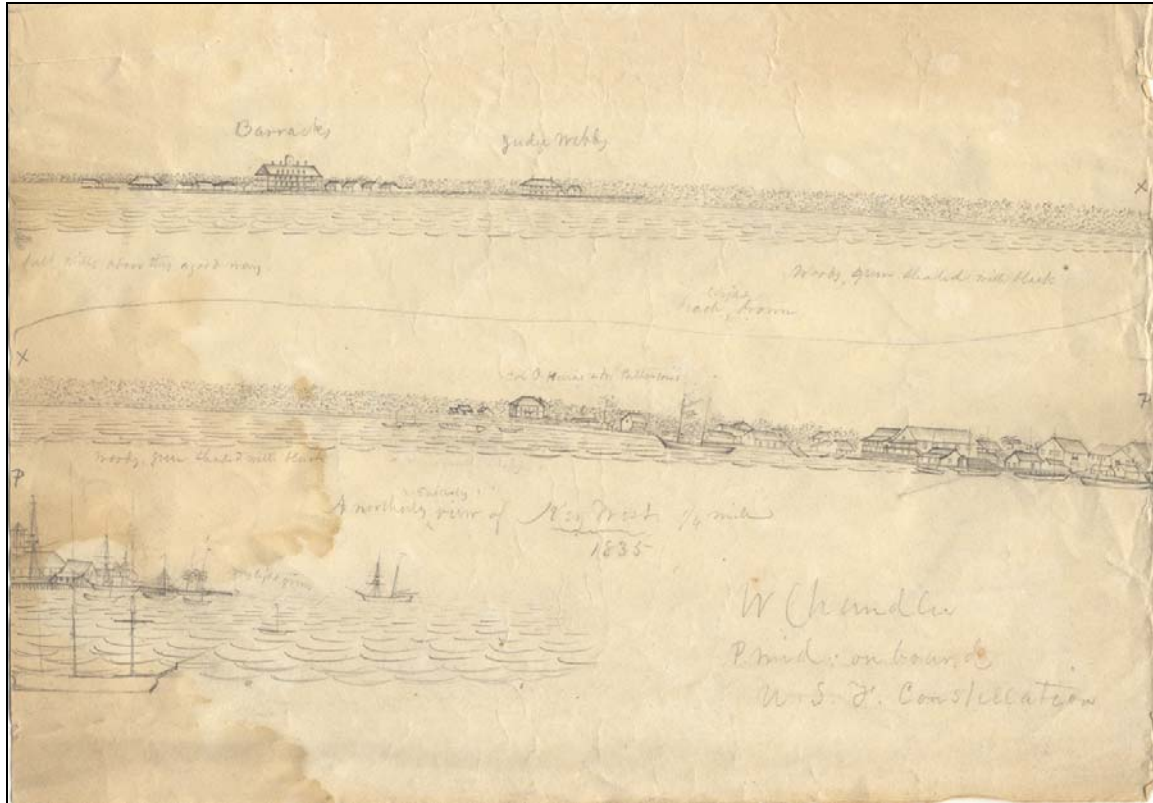 Barracks
Judge Webbs
X
this a good way
Woods, green shaded with black
brown
X
P
Woods, green shaded with black
P
A northerly view of Key West 1/4 mile
1835
light green
W Chandler
P. mid: on board
U. S. F. Constellation